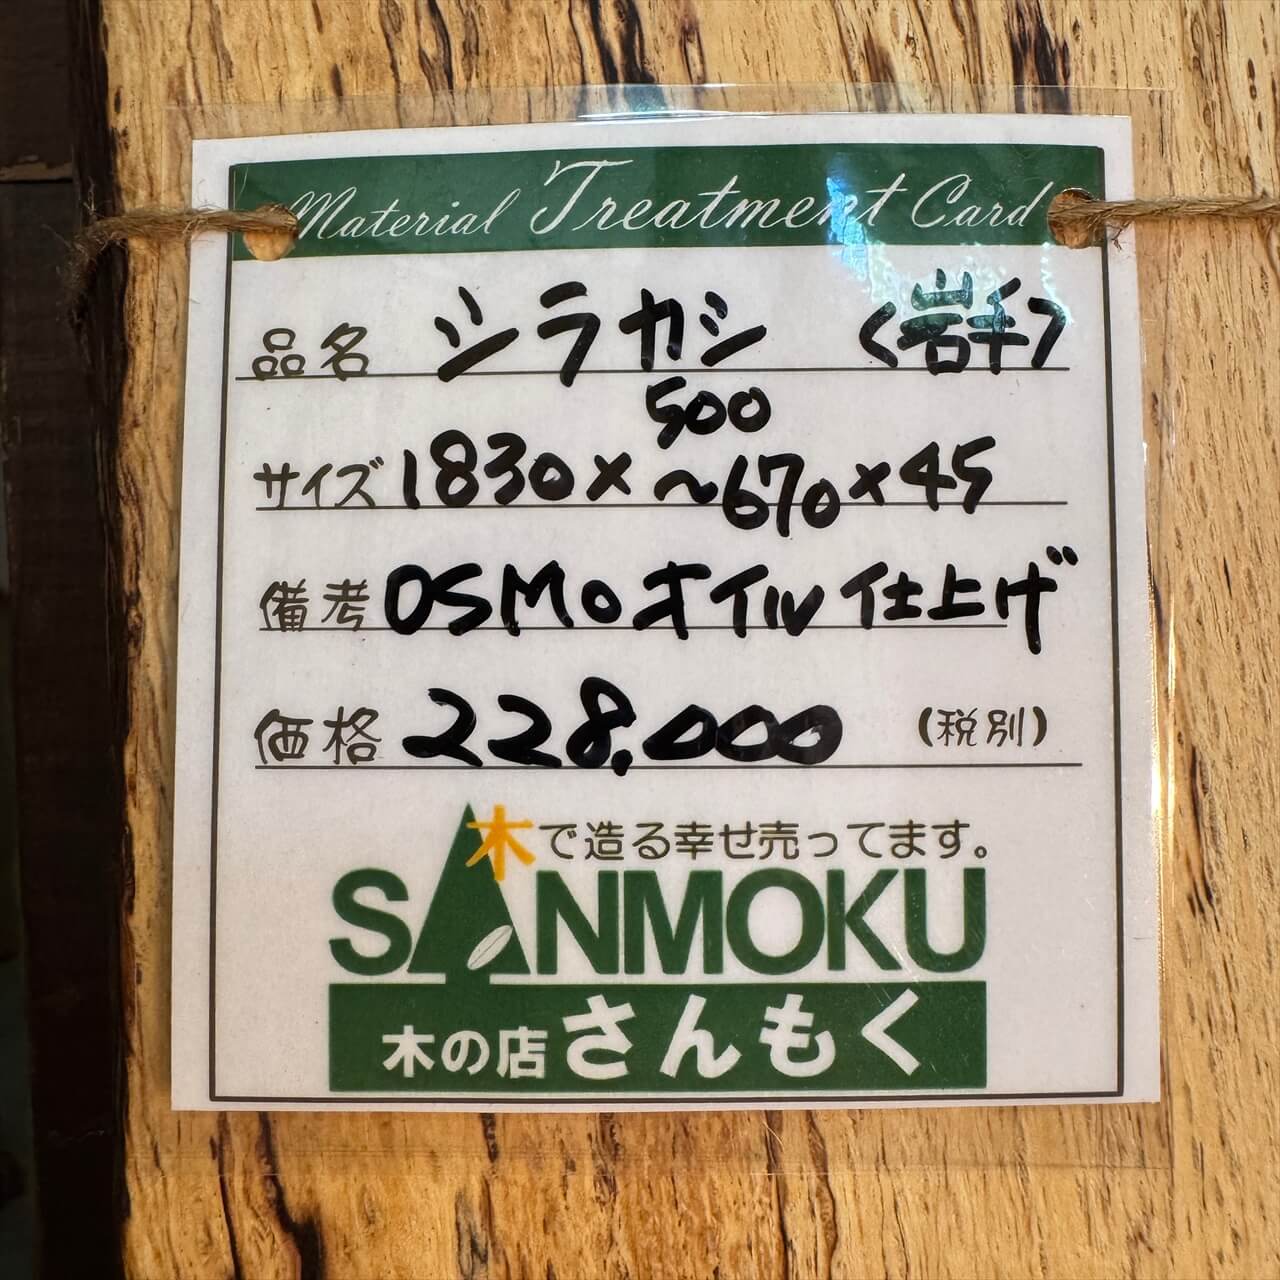 Material Treatment Card
品名 シラカシ (岩手)
サイズ 1830×500~670×45
備考 OSMOオイル仕上げ
価格 228,000 (税別)
木で造る幸せ売ってます。
SANMOKU
木の店さんもく